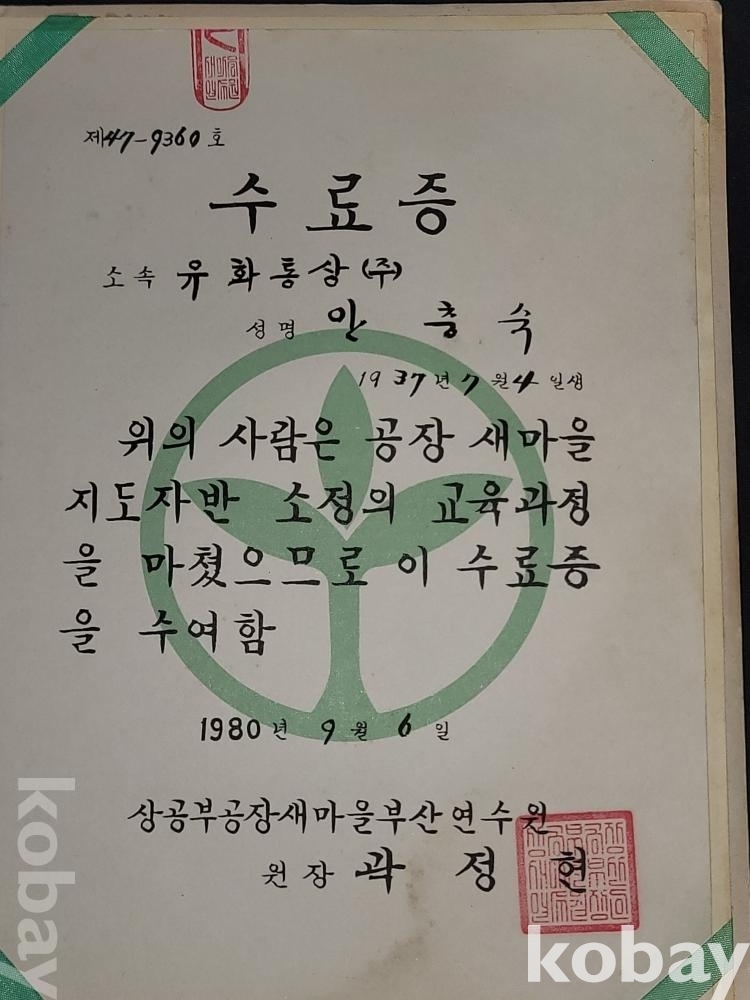 제47-9360호
수료증
소속 유화통상(주)
성명 안충숙
1937년 7월 4일생
위의 사람은 공장 새마을
지도자반 소정의 교육과정
을 마쳤으므로 이 수료증
을 수여함
1980년 9월 6일
상공부공장새마을부산연수원
원장 곽정현
kobay
kobay